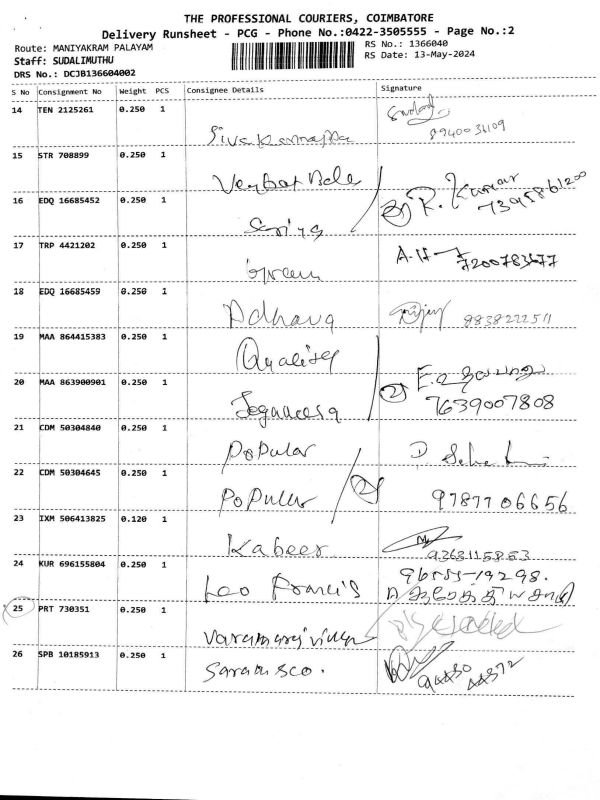 THE PROFESSIONAL COURIERS, COIMBATORE
Delivery Runsheet - PCG - Phone No.:0422-3505555 - Page No.:2
Route: MANIYAKRAM PALAYAM
RS No.: 1366040
Staff: SUDALIMUTHU
RS Date: 13-May-2024
DRS No.: DCJB136604002
S No Consignment No Weight PCS Consignee Details Signature
14 TEN 2125261 0.250 1
8940036109
15 STR 708899 0.250 1
16 EDQ 16685452 0.250 1 (2) R. Kumar
7395861200
17 TRP 4421202 0.250 1 Green
7200783677
18 EDQ 16685459 0.250 1 Adhava
8838222511
19 MAA 864415383 0.250 1 Quality
20 MAA 863900901 0.250 1 (2)
7639007808
21 CDM 50304840 0.250 1 Popular
22 CDM 50304645 0.250 1 Popular (2) 9787706656
23 IXM 506413825 0.120 1 Kabeer
9363115853
24 KUR 696155804 0.250 1 Leo Francis 96555-19298.
25 PRT 730351 0.250 1
26 SPB 10185913 0.250 1